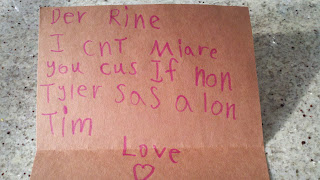 Der Rine
I cnT Miare
you cus If non
Tyler sas a lon
Tim
Love